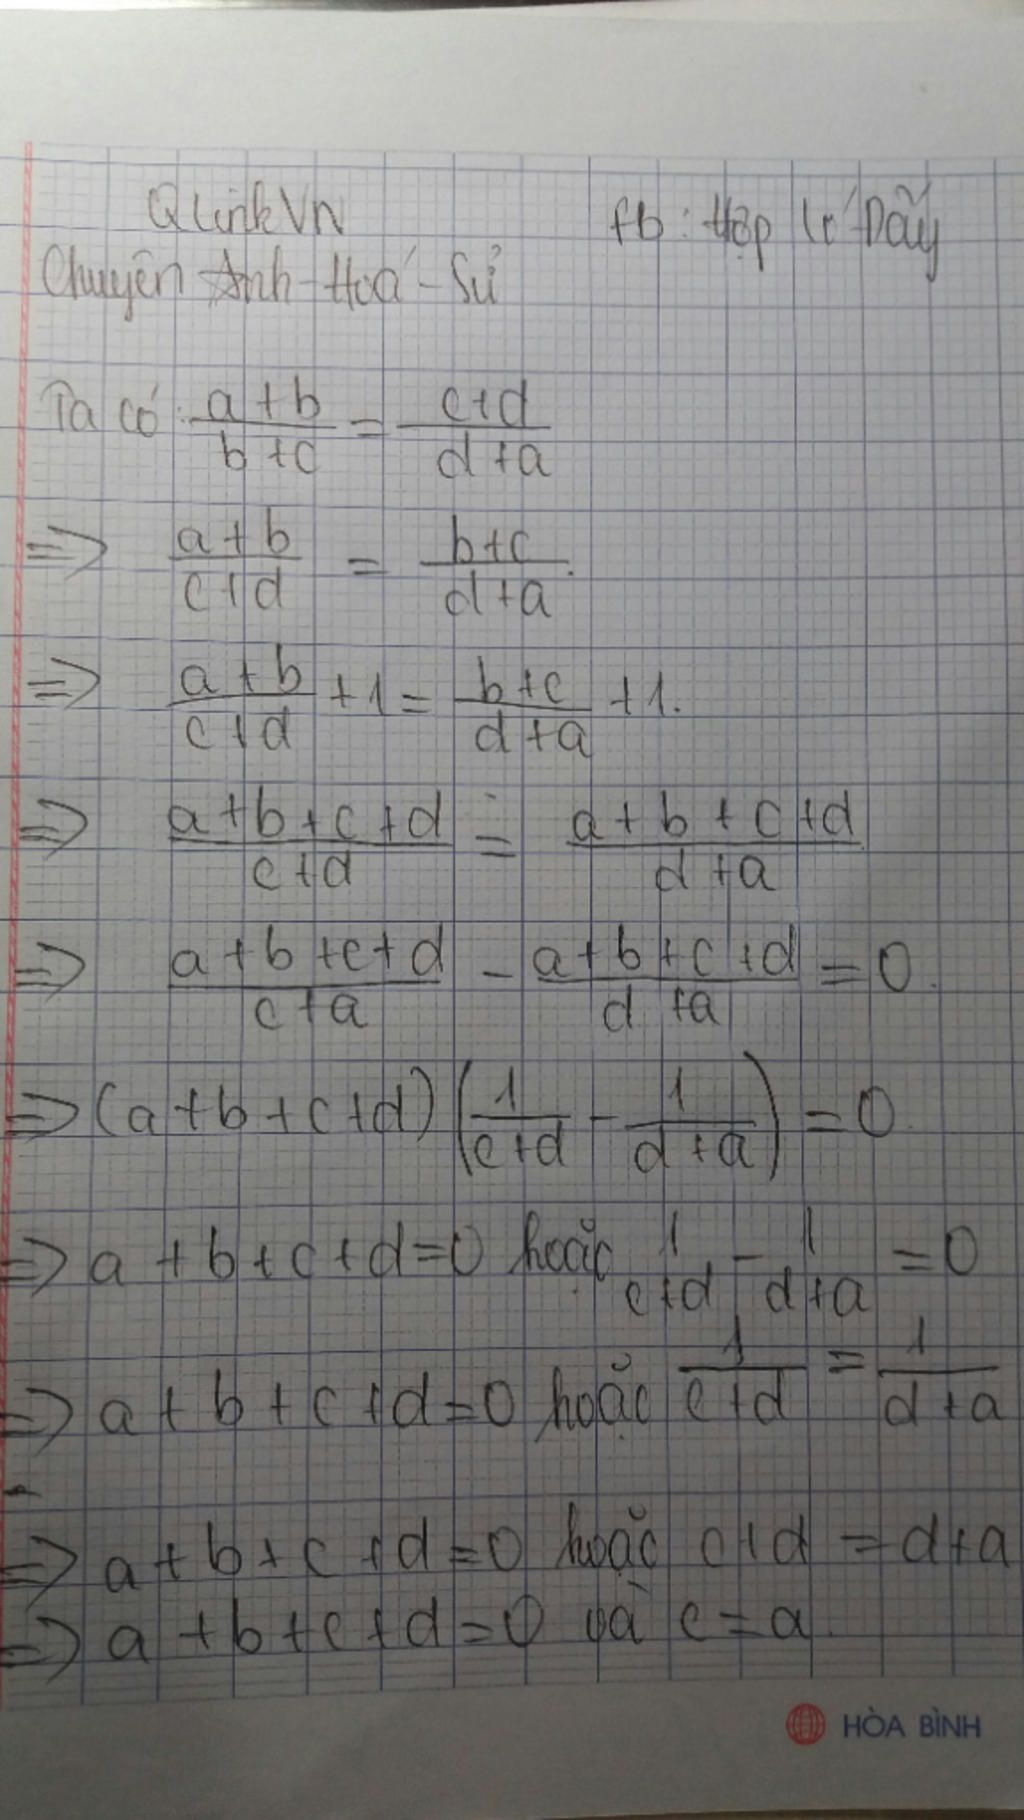 QlinkVn fb: Hộp lí Dẫy
Chuyên Anh-Hoá-Sử
Ta có: \frac{a+b}{b+c} = \frac{c+d}{d+a}
=> \frac{a+b}{c+d} = \frac{b+c}{d+a}.
=> \frac{a+b}{c+d} +1 = \frac{b+c}{d+a} +1.
=> \frac{a+b+c+d}{c+d} = \frac{a+b+c+d}{d+a}
=> \frac{a+b+c+d}{c+a} - \frac{a+b+c+d}{d+a} = 0.
=> (a+b+c+d) (\frac{1}{c+d} - \frac{1}{d+a}) = 0.
=> a+b+c+d=0 hoặc \frac{1}{c+d} - \frac{1}{d+a} = 0
=> a+b+c+d=0 hoặc \frac{1}{c+d} = \frac{1}{d+a}
=> a+b+c+d=0 hoặc c+d = d+a
=> a+b+c+d=0 và c=a.
HÒA BÌNH